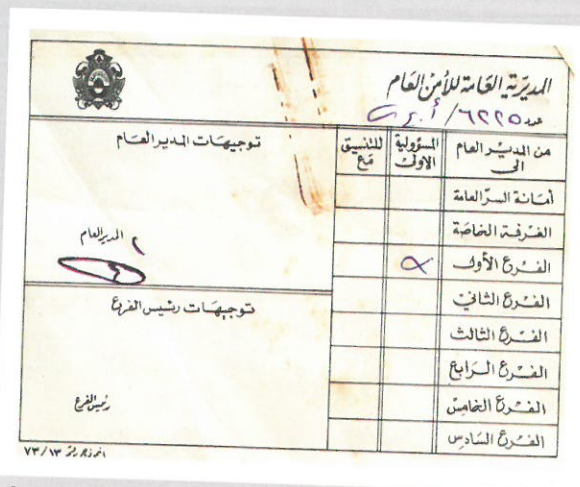 المديرية العامة للأمن العام
عدد ٦٢٢٥ / أ.
من المدير العام الى
المسؤولية الاولى
للتنسيق مع
توجيهات المدير العام
أمانة السر العامة
الغرفة الخاصة
الفرع الأول
الفرع الثاني
الفرع الثالث
الفرع الرابع
الفرع الخامس
الفرع السادس
المدير العام
توجيهات رئيس الفرع
رئيس الفرع
انموذج رقم ٧٣/١٣